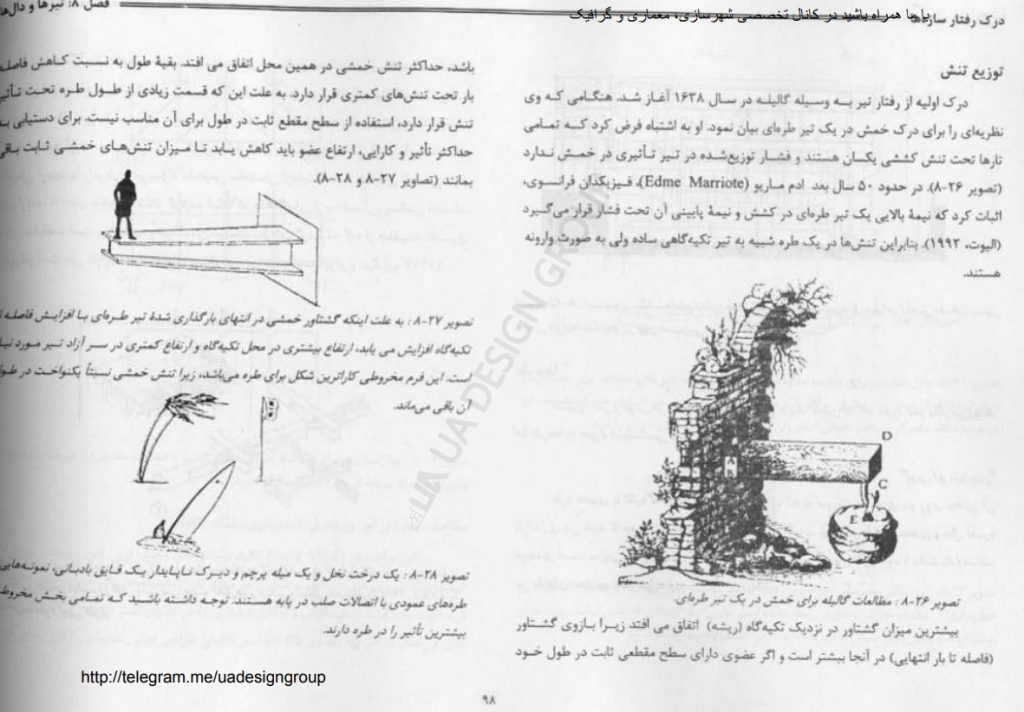 درک رفتار سازه‌ها
با ما همراه باشید در کانال تخصصی شهرسازی، معماری و گرافیک
توزیع تنش
درک اولیه از رفتار تیر به وسیله گالیله در سال ۱۶۳۸ آغاز شد. هنگامی که وی
نظریه‌ای را برای درک خمش در یک تیر طره‌ای بیان نمود. او به اشتباه فرض کرد که تمامی
تارها تحت تنش کششی یکسان هستند و فشار توزیع‌شده در تیر تأثیری در خمش ندارد
(تصویر ۲۶-۸). در حدود ۵۰ سال بعد ادم ماریو (Edme Marriote)، فیزیکدان فرانسوی،
اثبات کرد که نیمهٔ بالایی یک تیر طره‌ای در کشش و نیمهٔ پایینی آن تحت فشار قرار می‌گیرد
(الیوت، ۱۹۹۲). بنابراین تنش‌ها در یک طره شبیه به تیر تکیه‌گاهی ساده ولی به صورت وارونه
هستند.
A
D
C
E
تصویر ۲۶-۸ : مطالعات گالیله برای خمش در یک تیر طره‌ای.
بیشترین میزان گشتاور در نزدیک تکیه‌گاه (ریشه) اتفاق می افتد زیرا بازوی گشتاور
(فاصله تا بار انتهایی) در آنجا بیشتر است و اگر عضوی دارای سطح مقطعی ثابت در طول خود
فصل ۸: تیرها و دال‌ها
باشد، حداکثر تنش خمشی در همین محل اتفاق می افتد. بقیهٔ طول به نسبت کاهش فاصله
بار تحت تنش‌های کمتری قرار دارد. به علت این که قسمت زیادی از طول طره تحت تأثیر
تنش قرار دارد، استفاده از سطح مقطع ثابت در طول برای آن مناسب نیست. برای دستیابی به
حداکثر تأثیر و کارایی، ارتفاع عضو باید کاهش یابد تا میزان تنش‌های خمشی ثابت باقی
بمانند (تصاویر ۲۷-۸ و ۲۸-۸).
تصویر ۲۷-۸ : به علت اینکه گشتاور خمشی در انتهای بارگذاری شدهٔ تیر طره‌ای با افزایش فاصله
تکیه‌گاه افزایش می یابد، ارتفاع بیشتری در محل تکیه‌گاه و ارتفاع کمتری در سر آزاد تیر مورد
است. این فرم مخروطی کاراترین شکل برای طره می‌باشد، زیرا تنش خمشی نسبتاً یکنواخت در
آن باقی می‌ماند.
تصویر ۲۸-۸ : یک درخت نخل و یک میله پرچم و دیرک ناپایدار یک قایق بادبانی، نمونه‌هایی
طره‌های عمودی با اتصالات صلب در پایه هستند. توجه داشته باشید که تمامی بخش
بیشترین تأثیر را در طره دارند.
UA DESIGN GROUP
http://telegram.me/uadesigngroup
۹۸